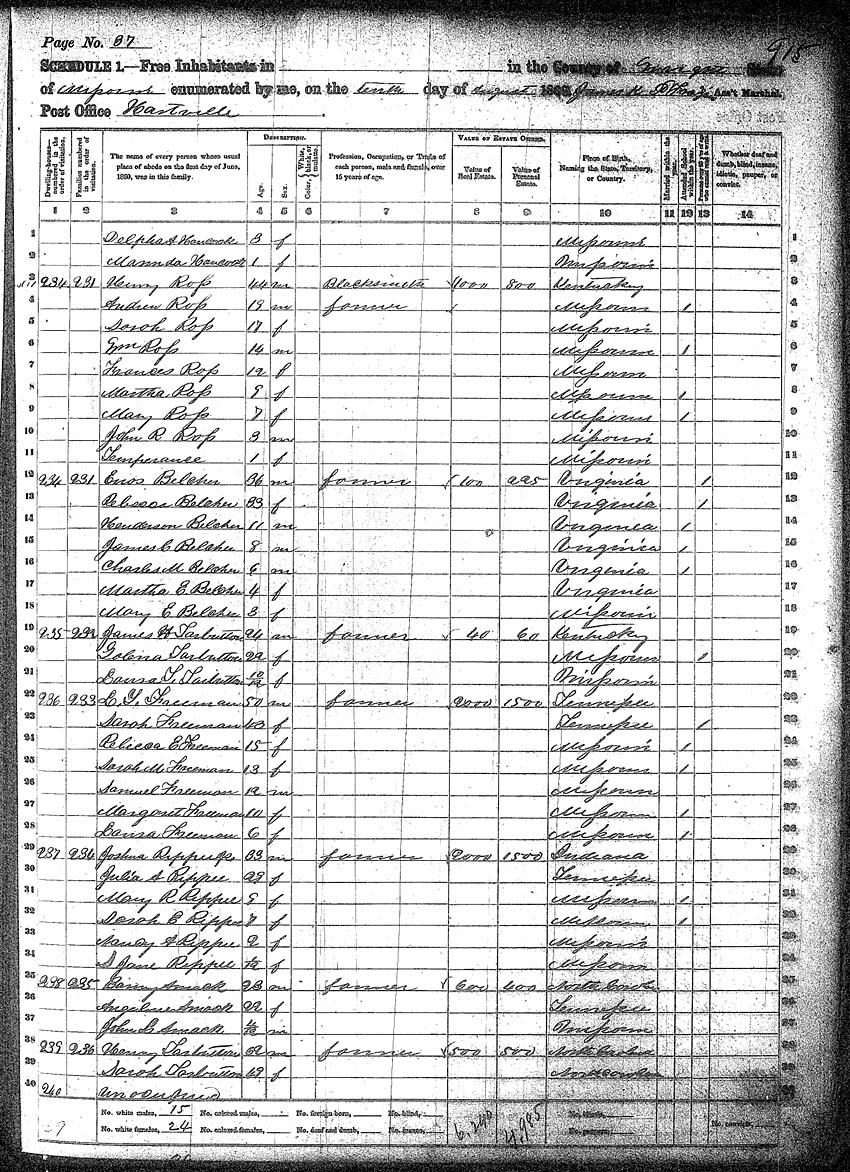 Page No. 37
915
SCHEDULE 1.—Free Inhabitants in in the County of State
of Missouri enumerated by me, on the tenth day of August 1860. Ass't Marshal.
Post Office Hartville
Dwelling-houses numbered in the order of visitation. Families numbered in the order of visitation. The name of every person whose usual place of abode on the first day of June, 1860, was in this family. DESCRIPTION. Age. Sex. Color, White, black, or mulatto. Profession, Occupation, or Trade of each person, male and female, over 15 years of age. VALUE OF ESTATE OWNED. Value of Real Estate. Value of Personal Estate. Place of Birth, Naming the State, Territory, or Country. Married within the year. Attended School within the year. Whether deaf and dumb, blind, insane, idiotic, pauper, or convict.
1 2 3 4 5 6 7 8 9 10 11 12 13 14
1 Delpha A Hancock 3 f Missouri 1
2 Marinda Hancock 1 f Missouri 2
3 234 231 Henry Ross 44 m Blacksmith 1000 800 Kentucky 3
4 Andrew Ross 19 m farmer Missouri 1 4
5 Sarah Ross 17 f Missouri 5
6 Wm Ross 14 m Missouri 1 6
7 Frances Ross 12 f Missouri 7
8 Martha Ross 9 f Missouri 1 8
9 Mary Ross 7 f Missouri 1 9
10 John R Ross 3 m Missouri 10
11 Temperance 1 f Missouri 11
12 234 231 Enos Belcher 36 m farmer 100 225 Virginia 1 12
13 Rebecca Belcher 33 f Virginia 1 13
14 Henderson Belcher 11 m Virginia 1 14
15 James C Belcher 8 m Virginia 1 15
16 Charles M. Belcher 6 m Virginia 1 16
17 Martha E. Belcher 4 f Virginia 17
18 Mary E Belcher 3 f Missouri 18
19 235 232 James H Tarbutton 24 m farmer 40 60 Kentucky 19
20 Tarbutton 22 f Missouri 1 20
21 Laura T. Tarbutton 10/12 f Missouri 21
22 236 233 L. Y. Freeman 50 m farmer 2000 1500 Tennessee 22
23 Sarah Freeman 43 f Tennessee 1 23
24 Rebecca E Freeman 15 f Missouri 1 24
25 Sarah M. Freeman 13 f Missouri 1 25
26 Samuel Freeman 12 m Missouri 26
27 Margaret Freeman 10 f Missouri 1 27
28 Laura Freeman 6 f Missouri 1 28
29 237 234 Joshua Rippee 33 m farmer 2000 1500 Indiana 29
30 Julia A Rippee 29 f Tennessee 30
31 Mary R Rippee 9 f Missouri 1 31
32 Sarah E Rippee 7 f Missouri 1 32
33 Nancy A Rippee 2 f Missouri 33
34 S Jane Rippee f Missouri 34
35 238 235 Smack 23 m farmer 600 400 North Carolina 35
36 Angeline Smack 22 f Tennessee 36
37 John L Smack m Missouri 37
38 239 236 Henry Tarbutton 52 m farmer 500 500 North Carolina 38
39 Sarah Tarbutton 49 f North Carolina 39
40 240 unoccupied 40
No. white males, 15 No. colored males, No. foreign born, No. blind, 6,240 4,985
No. white females, 24 No. colored females, No. deaf and dumb, No. insane, No. convicts,